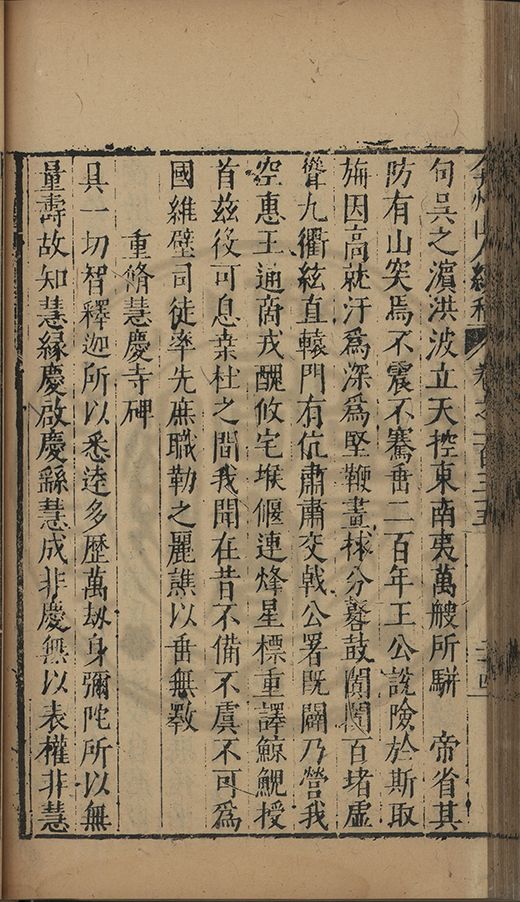 弇州山人續稿 卷之一百三十五 二十四
句吳之濱洪波立天控東南夷萬艘所駢 帝省其
防有山突焉不震不騫垂二百年王公設險於斯取
旃因高就汙爲深爲堅鞭畫捄分鼛鼓闐闐百堵虛
聳九衢絃直轅門有伉肅肅交戟公署既闢乃營我
空惠王通啇戎醜攸宅堠偃連烽星標重譯鯨鯢授
首茲役可息葉杜之間我聞在昔不備不虞不可爲
國維璧司徒率先庶職勒之麗譙以垂無斁
重脩慧慶寺碑
具一切智釋迦所以悉逵多歷萬劫身彌陀所以無
量壽故知慧緣慶啟慶繇慧成非慶無以表權非慧